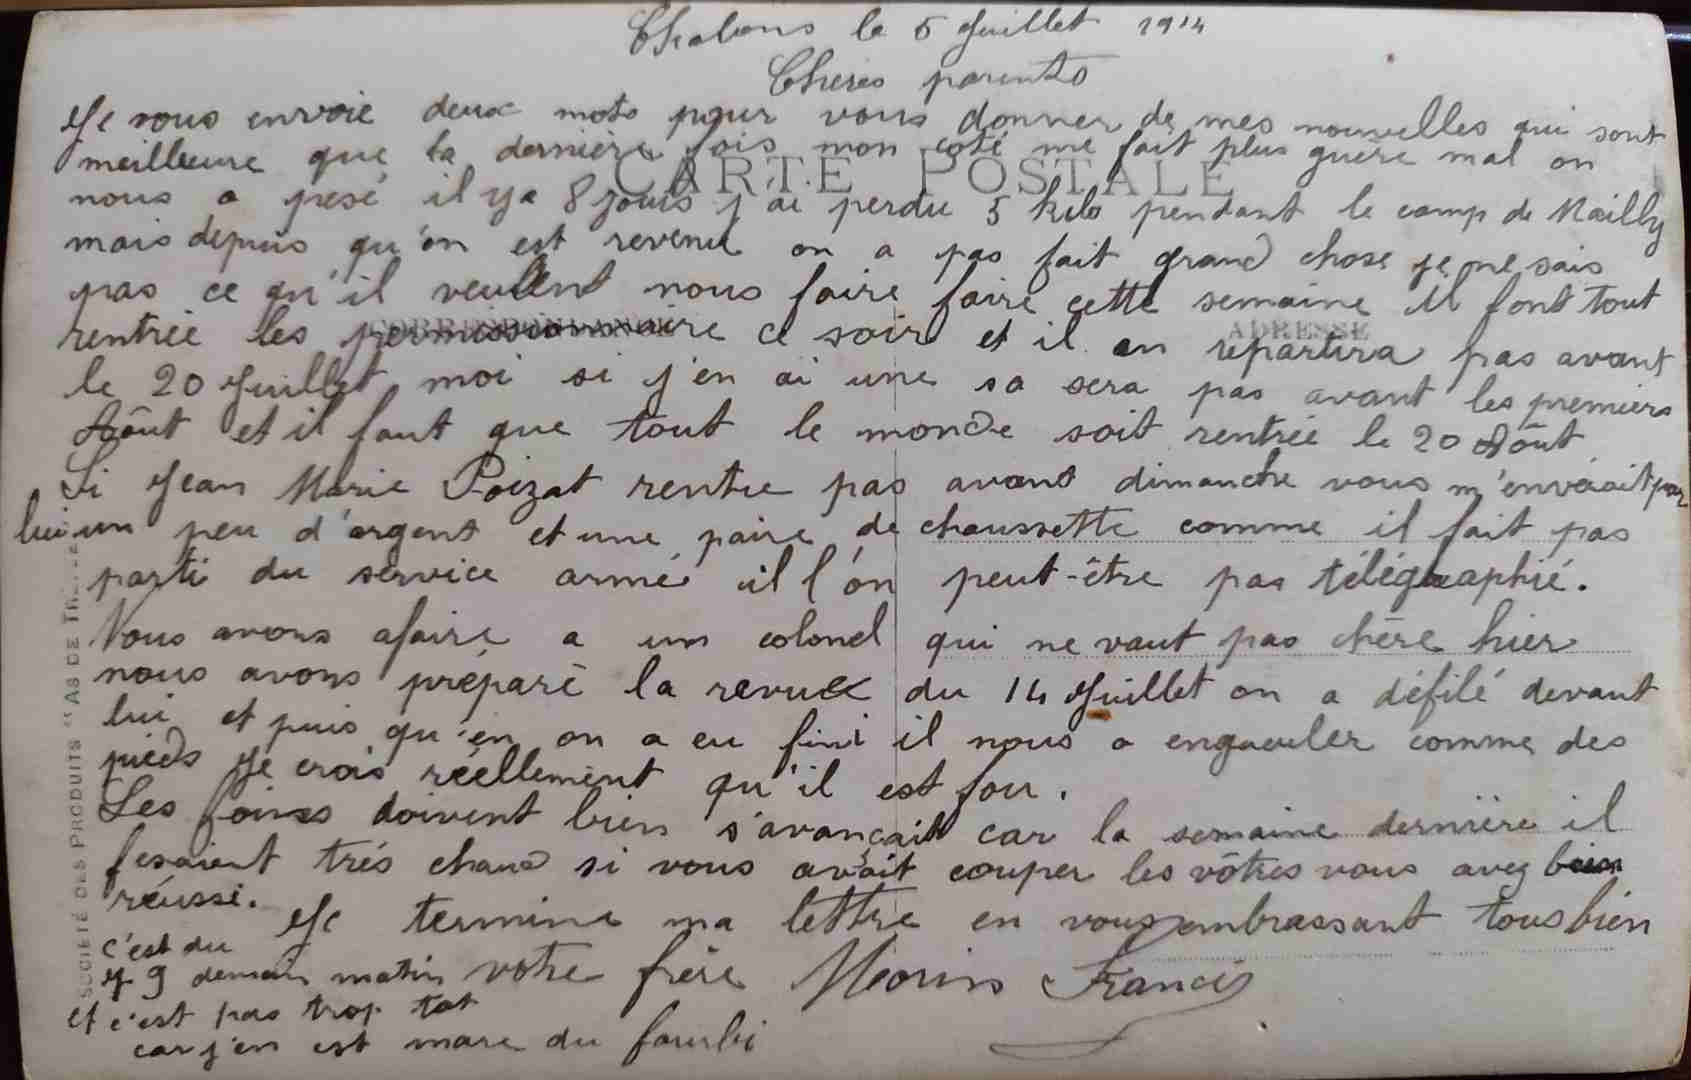 Chalons le 5 Juillet 1914
Chères parents
Je vous envoie deux mots pour vous donner de mes nouvelles qui sont
meilleure que la dernière fois mon coté me fait plus guère mal on
CARTE POSTALE
nous a pesé il y a 8 jours j'ai perdu 5 kilo pendant le camp de Mailly
mais depuis qu'on est revenu on a pas fait grand chose je ne sais
pas ce qu'il veulent nous faire faire cette semaine il font tout
CORRESPONDANCE ADRESSE
rentrée les permissionnaire ce soir et il en repartira pas avant
le 20 Juillet moi si j'en ai une sa sera pas avant les premiers
Août et il faut que tout le monde soit rentrée le 20 Août
Si Jean Marie Poizat rentre pas avant dimanche vous m'envoiait par
lui un peu d'argent et une paire de chaussette comme il fait pas
parti du service armé il l'on peut-être pas télégraphié.
Nous avons afaire a un colonel qui ne vaut pas chère hier
nous avons préparé la revue du 14 Juillet on a défilé devant
lui et puis qu'en on a eu fini il nous a engueuler comme des
pieds Je crois réellement qu'il est fou.
Les foins doivent bien s'avançait car la semaine dernière il
fesaient très chaud si vous avait couper les vôtres vous avez bien
réussi.
Je termine ma lettre en vous embrassant tous bien
votre frère Morin Francis
c'est du
79 demain matin
et c'est pas trop tot
car j'en est mare du fourbi
SOCIÉTÉ DES PRODUITS "AS DE